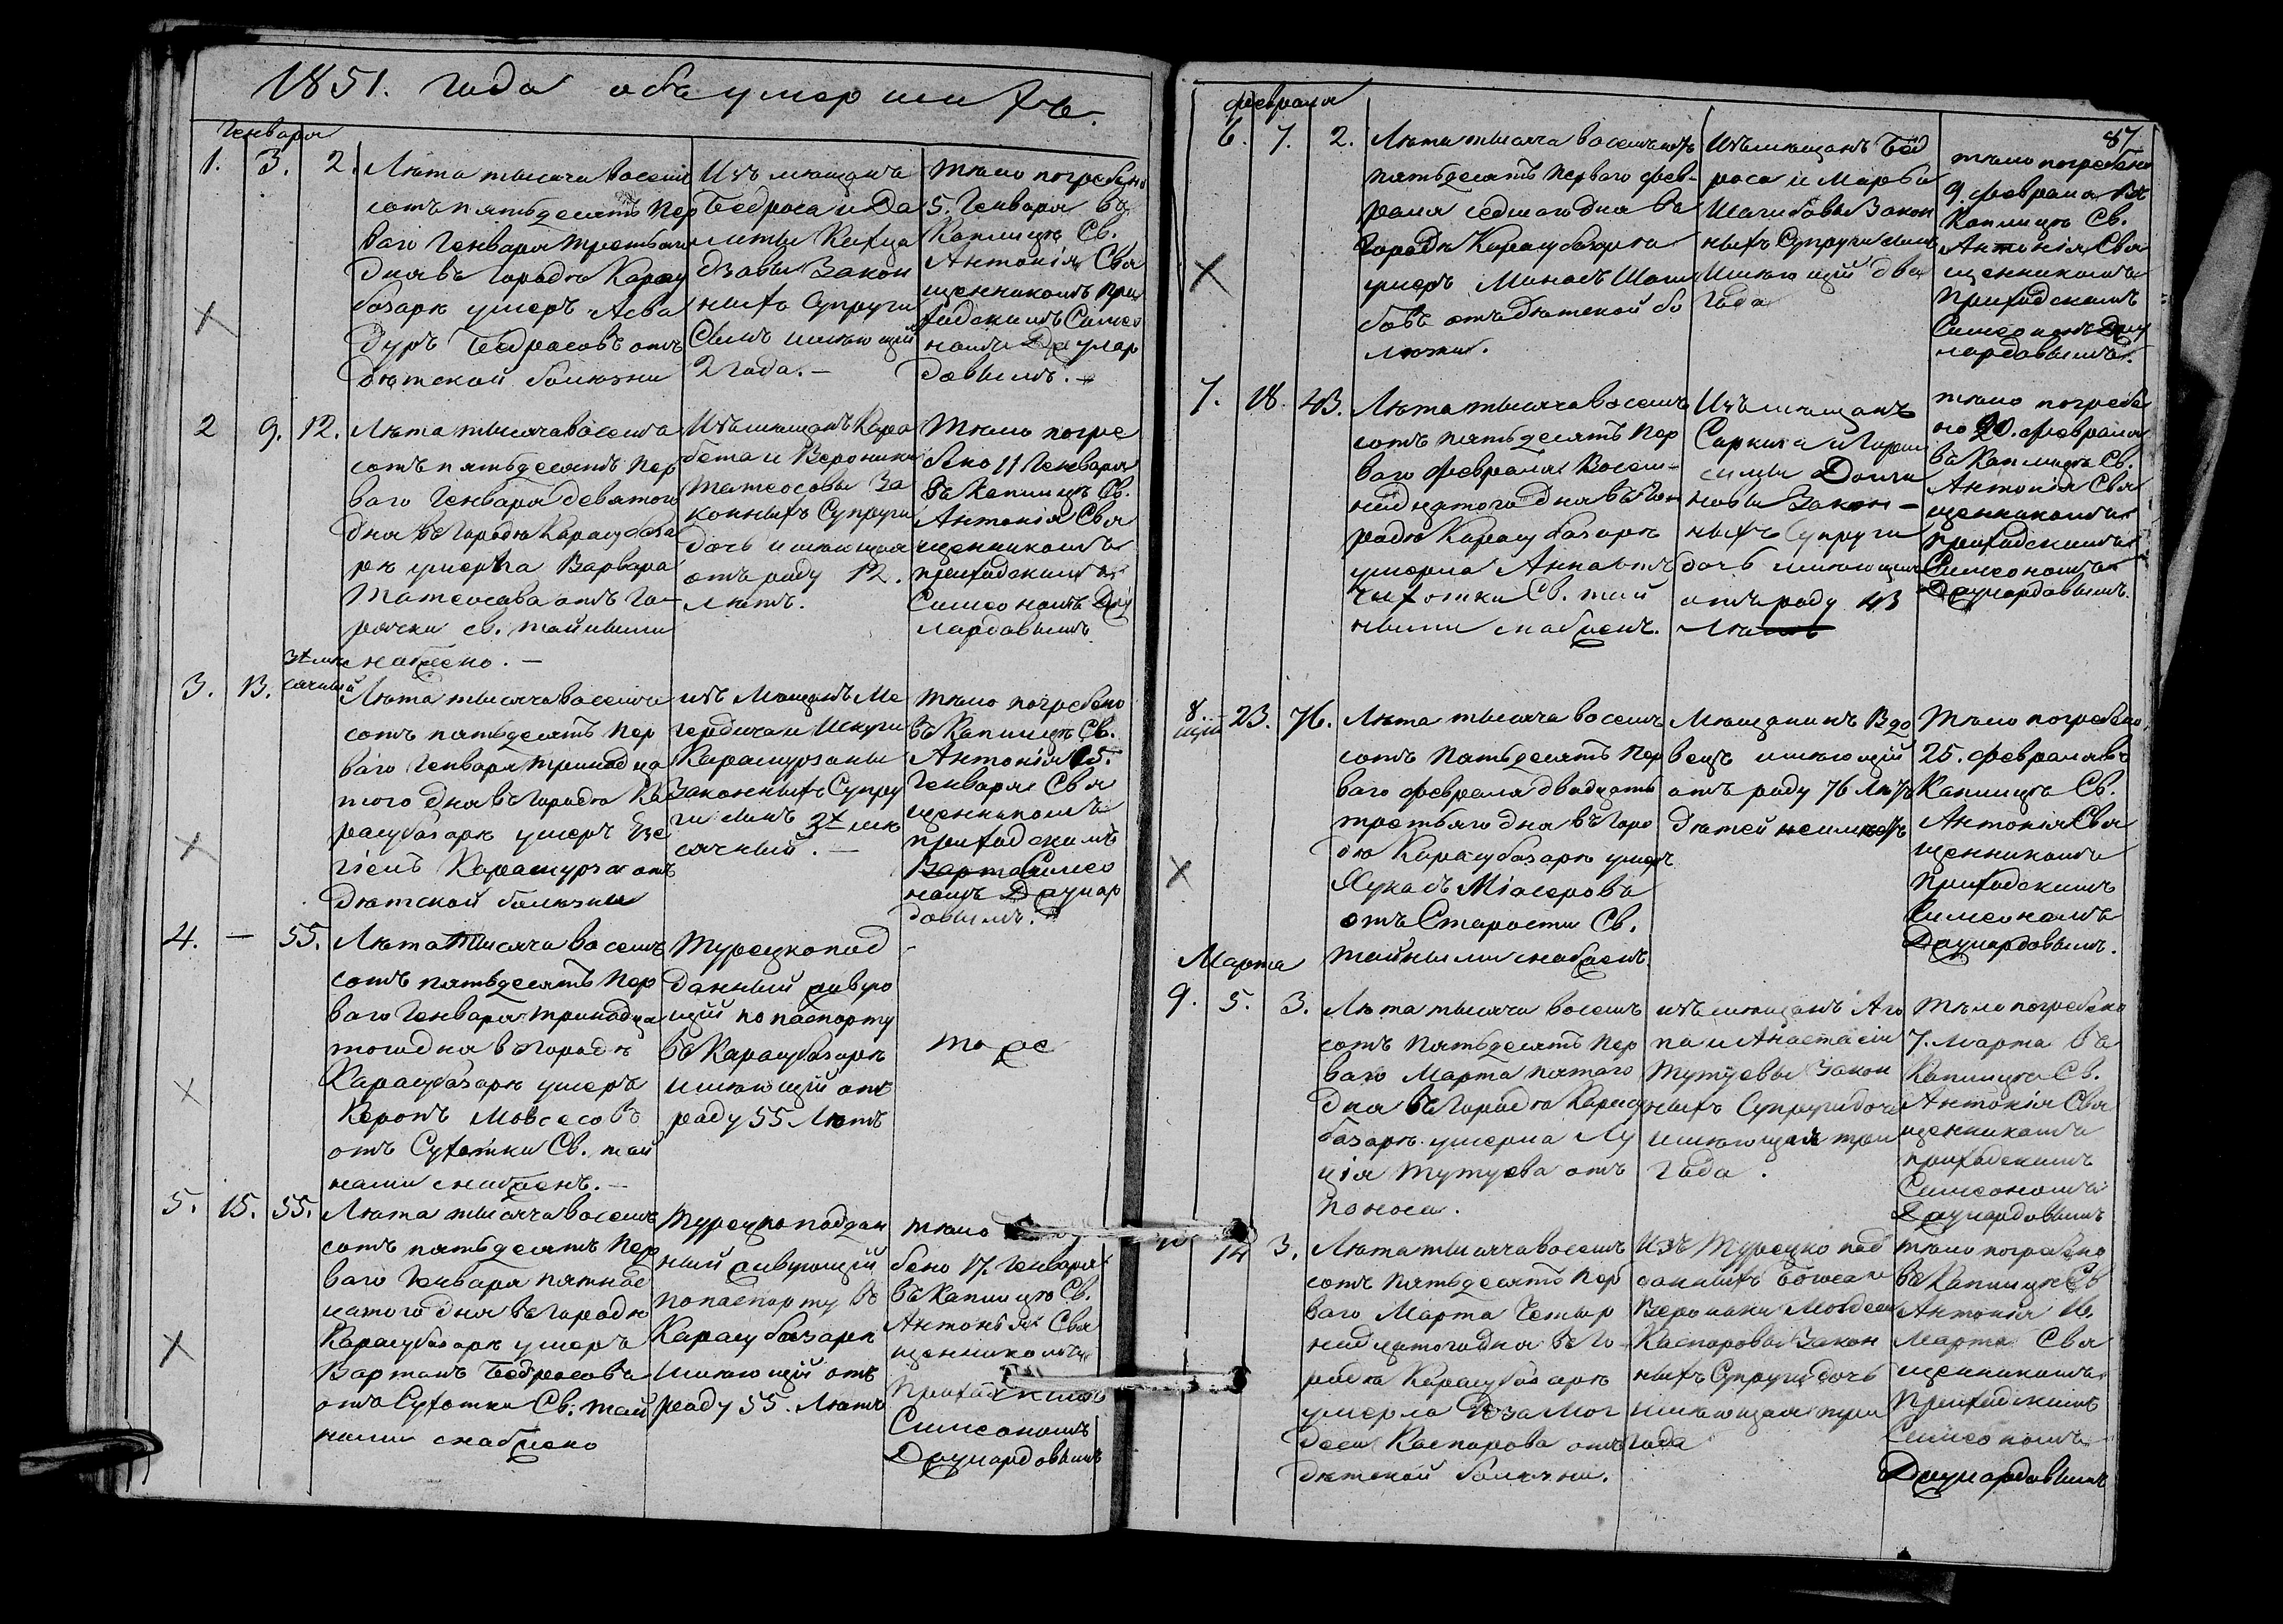 1851. года объ умершихъ.
Генваря
1. 3. 2.
Лѣта тысяча восемь
сотъ пятьдесятъ пер
ваго Генваря третьяго
дня въ Городѣ Карасу
базарѣ умеръ Асва
дуръ Бедросовъ отъ
дѣтской болѣзни
Изъ мѣщанъ
Бедроса и
законныхъ Супруги
Сынъ имѣющій
2 года. —
тѣло погребено
5. Генваря въ
Каплицѣ Св.
Антонія Свя
щенникомъ при
ходскимъ Симео
номъ Даулар
довымъ. —
2 9. 12.
Лѣта тысяча восемь
сотъ пятьдесятъ пер
ваго Генваря девятого
дня въ Городѣ Карасубаза
рѣ умерла Варвара
Татеосова отъ го-
рячки св. тайными
снабжено. —
Изъ мѣщанъ Кара
бета и Вероники
Татеосовы за
конныхъ Супруги
дочь имѣющая
отъ роду 12.
лѣтъ.
Тѣло погре
бено 11 Генваря
въ Каплицѣ Св.
Антонія Свя
щенникомъ
приходскимъ
Симеономъ Дау
лардовымъ.
3. 13. 3х мѣ
сячный
Лѣта тысяча восемь
сотъ пятьдесятъ пер
ваго Генваря тринадца
того дня въ Городѣ Ка
расубазарѣ умеръ Езе
гіель Карамурза отъ
дѣтской болѣзни
изъ Мѣщанъ Ме
гердича и
Карамурзаны
Законныхъ Супру
ги сынъ 3х мѣ
сячный. —
тѣло погребено
въ Каплицѣ Св.
Антонія 15.
Генваря Свя
щенникомъ
приходскимъ
Симео
номъ Даулар
довымъ.
4. — 55.
Лѣта тысяча восемь
сотъ пятьдесятъ пер
ваго Генваря тринадца
того дня въ Городѣ
Карасубазарѣ умеръ
Керопъ Мовсесовъ
отъ Сухотки Св. тай
нами снабженъ. —
Турецкопод
данный живую
щій по паспорту
въ Карасубазарѣ
имѣющій отъ
роду 55 Лѣтъ
то же
5. 15. 55.
Лѣта тысяча восемь
сотъ пятьдесятъ пер
ваго Генваря пятнад
цатого дня въ Городѣ
Карасубазарѣ умеръ
Вартанъ Бедросовъ
отъ Сухотки Св. тай
нами снабжено
Турецкоподдан
ный живующій
по паспорту въ
Карасубазарѣ
имѣющій отъ
роду 55. Лѣтъ
тѣло
бено 17. Генваря
въ Каплицѣ Св.
Антонія Свя
щенникомъ
Приходскимъ
Симеономъ
Даулардовымъ
87
Февраля
6. 7. 2.
Лѣта тысяча восемьсотъ
пятьдесятъ перваго Фев-
раля седмого дня въ
Городѣ Карасубазарѣ
умеръ Минасъ
отъ дѣтской бо
лѣзни.
Изъ мѣщанъ Бед
роса и Марѳы
Закон
ныхъ Супруги сынъ
имѣющій два
года
тѣло погребено
9. Февраля въ
Каплицѣ Св.
Антонія Свя
щенникомъ
Приходскимъ
Симеономъ Дау
лардовымъ.
7. 18. 43.
Лѣта тысяча восемь
сотъ пятьдесятъ пер
ваго Февраля Восем-
надцатого дня въ Го
родѣ Карасубазарѣ
умерла Анна отъ
Сухотки Св. тай
ными снабженъ.
Изъ мѣщанъ
Саркиса и
новы Закон-
ныхъ Супруги
дочь имѣющая
отъ роду 43
Лѣтъ
тѣло погребе
но 20. Февраля
въ Каплицѣ Св.
Антонія Свя
щенникомъ
приходскимъ
Симеономъ
Даулардовымъ.
8. 23. 76.
Лѣта тысяча восемь
сотъ Пятьдесятъ Пер
ваго Февраля двадцать
третьяго дня въ Горо
дѣ Карасубазарѣ умеръ
Лукасъ Місеровъ
отъ Старости Св.
тайными снабженъ.
Мѣщанинъ Вдо
вецъ имѣющій
отъ роду 76 Лѣтъ
дѣтей не имѣетъ
Тѣло погребено,
25. Февраля въ
Каплицѣ Св.
Антонія Свя
щенникомъ
Приходскимъ
Симеономъ
Даулардовымъ.
Марта
9. 5. 3.
Лѣта тысяча восемь
сотъ Пятьдесятъ Пер
ваго Марта пятаго
дня въ Городѣ Карасу
базарѣ умерла Лу
ція Тутуева отъ
поноса.
изъ мѣщанъ Аго
па и Анастасіи
Тутуевы Закон
ныхъ Супруги дочь
имѣющая три
Года.
Тѣло погребено
7. Марта въ
Каплицѣ Св.
Антонія Свя
щенникомъ
приходскимъ
Симеономъ
Даулардовымъ
14 3.
Лѣта тысяча восемь
сотъ Пятьдесятъ пер
ваго Марта Четыр
надцатого дня въ Го
родѣ Карасубазарѣ
умерла
Каспарова отъ
дѣтской болѣзни.
Изъ Турецко под
данныхъ
Вероники
Каспаровы Закон
ныхъ Супруги дочь
имѣющая три
года
тѣло погребено
въ Каплицѣ Св
Антонія 16.
Марта Свя
щенникомъ
Приходскимъ
Симеономъ
Даулардовымъ